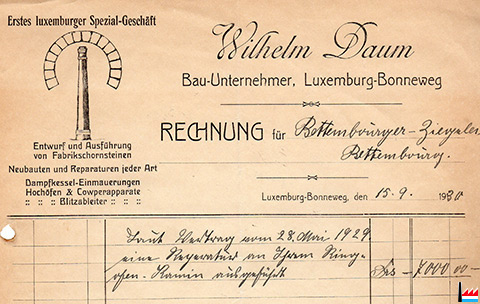 Erstes luxemburger Spezial-Geschäft
Wilhelm Daum
Bau-Unternehmer, Luxemburg-Bonneweg
RECHNUNG für Bettembourger-Ziegelei
Bettembourg.
Entwurf und Ausführung
von Fabrikschornsteinen
Neubauten und Reparaturen jeder Art
Dampfkessel-Einmauerungen
Hochöfen & Cowperapparate
:: :: :: Blitzableiter :: :: ::
Luxemburg-Bonneweg, den 15. 9. 1930
Laut Vertrag vom 28. Mai 1929
eine Reparatur an Ihrem Ring-
ofen-Kamin ausgeführt Frs - 7000 00 -